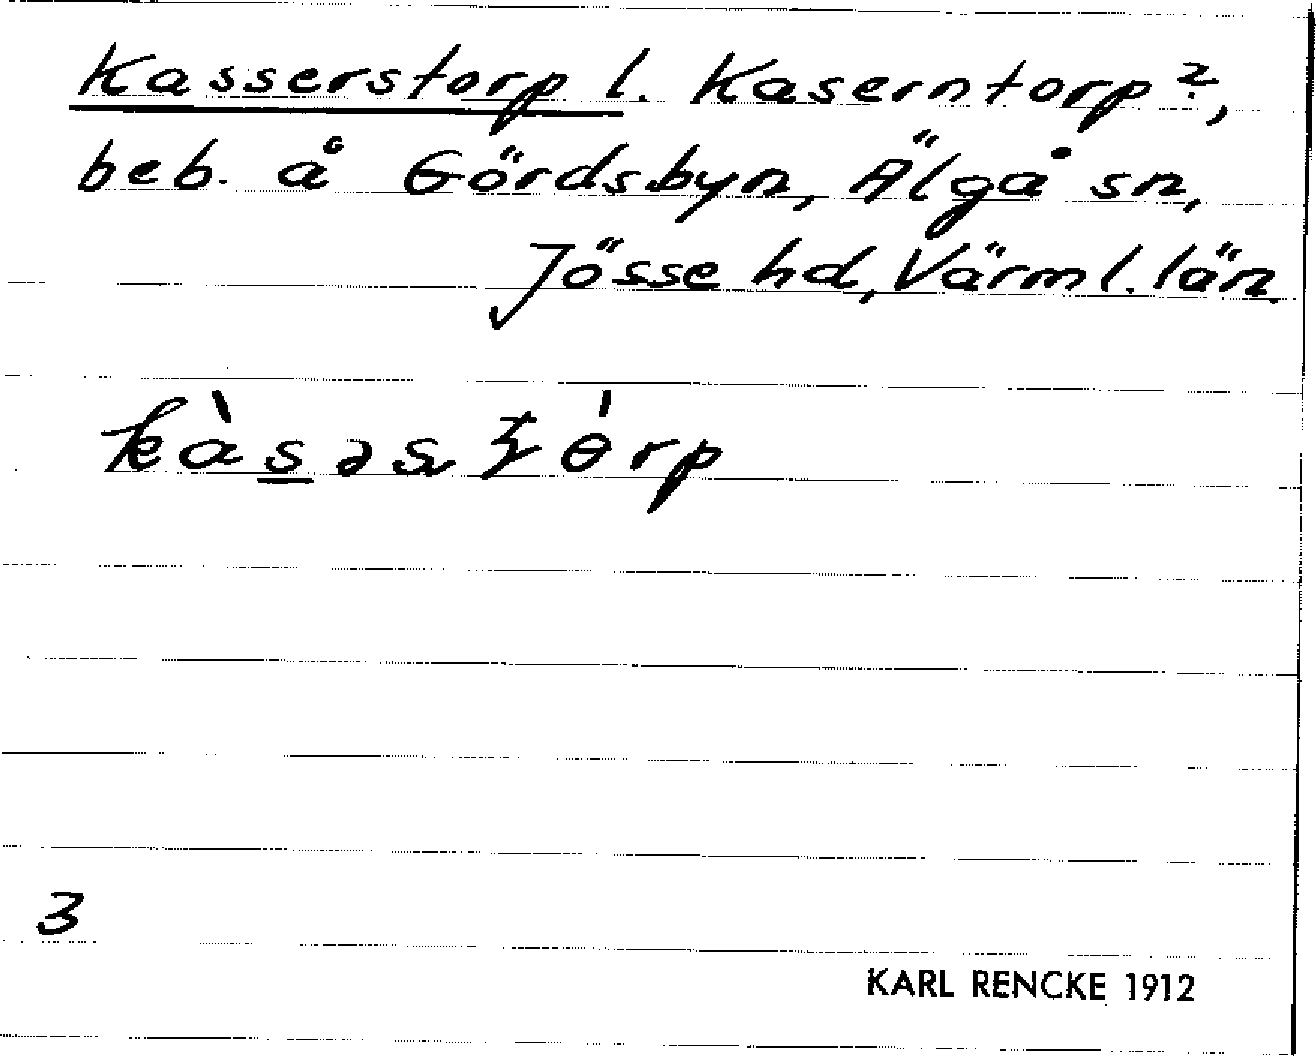 Kasserstorp l. Kaserntorp?,
beb. å Gördsbyn, Älgå sn,
Jösse hd, Värml. län.
kàsəsʈɵ́rp
3
KARL RENCKE 1912